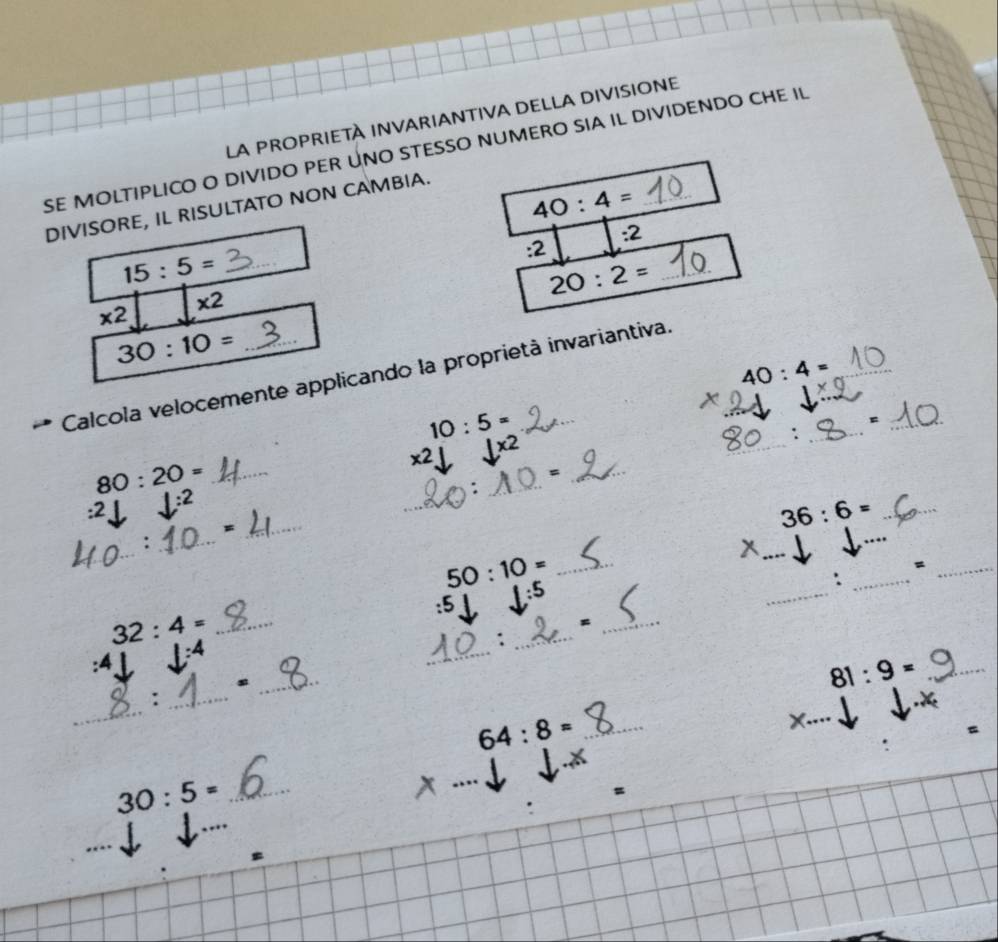 LA PROPRIETÀ INVARIANTIVA DELLA DIVISIONE
SE MOLTIPLICO O DIVIDO PER UNO STESSO NUMERO SIA IL DIVIDENDO CHE IL
DIVISORE, IL RISULTATO NON CAMBIA.
15 : 5 = 3
x2 x2
30 : 10 = 3
40 : 4 = 10
:2 :2
20 : 2 = 10
Calcola velocemente applicando la proprietà invariantiva.
80 : 20 = 4
:2 :2
40 : 10 = 4
10 : 5 = 2
x2 x2
20 : 10 = 2
40 : 4 = 10
x 2 x 2
80 : 8 = 10
32 : 4 = 8
:4 :4
8 : 1 = 8
50 : 10 = 5
:5 :5
10 : 2 = 5
36 : 6 = 6
x .... ....
: =
30 : 5 = 6
.... ....
: =
64 : 8 = 8
x .... x
: =
81 : 9 = 9
x .... x
: =